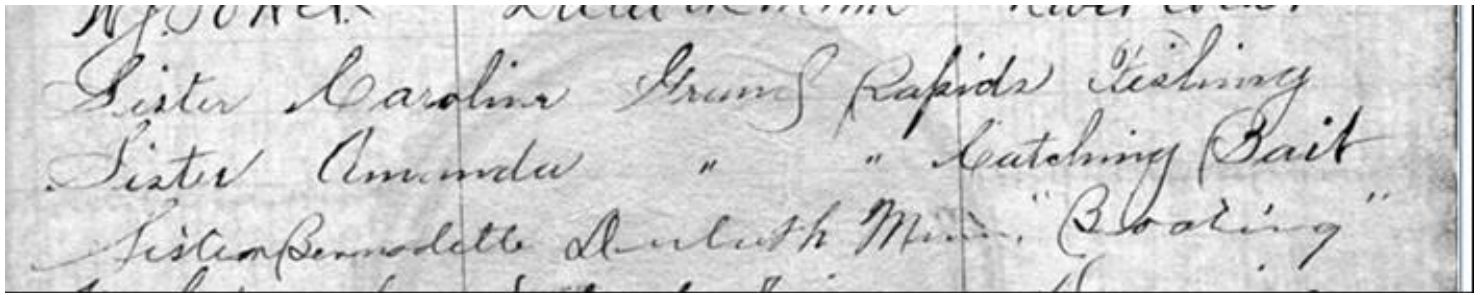 Sister Caroline Grand Rapids Fishing
Sister Amanda " " Catching Bait
Sister Bernadette Duluth Minn. "Boating"